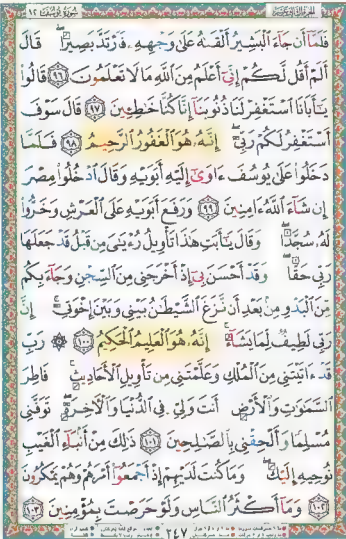 سُورَةُ يُوسُف ١٢
الجزء الثالث عشر
فَلَمَّآ أَن جَآءَ ٱلْبَشِيرُ أَلْقَىٰهُ عَلَىٰ وَجْهِهِۦ فَٱرْتَدَّ بَصِيرًا ۖ قَالَ
أَلَمْ أَقُل لَّكُمْ إِنِّىٓ أَعْلَمُ مِنَ ٱللَّهِ مَا لَا تَعْلَمُونَ ٩٦ قَالُوا۟
يَٰٓأَبَانَا ٱسْتَغْفِرْ لَنَا ذُنُوبَنَآ إِنَّا كُنَّا خَٰطِـِٔينَ ٩٧ قَالَ سَوْفَ
أَسْتَغْفِرُ لَكُمْ رَبِّىٓ ۖ إِنَّهُۥ هُوَ ٱلْغَفُورُ ٱلرَّحِيمُ ٩٨ فَلَمَّا
دَخَلُوا۟ عَلَىٰ يُوسُفَ ءَاوَىٰٓ إِلَيْهِ أَبَوَيْهِ وَقَالَ ٱدْخُلُوا۟ مِصْرَ
إِن شَآءَ ٱللَّهُ ءَامِنِينَ ٩٩ وَرَفَعَ أَبَوَيْهِ عَلَى ٱلْعَرْشِ وَخَرُّوا۟
لَهُۥ سُجَّدًا ۖ وَقَالَ يَٰٓأَبَتِ هَٰذَا تَأْوِيلُ رُءْيَٰىَ مِن قَبْلُ قَدْ جَعَلَهَا
رَبِّى حَقًّا ۖ وَقَدْ أَحْسَنَ بِىٓ إِذْ أَخْرَجَنِى مِنَ ٱلسِّجْنِ وَجَآءَ بِكُم
مِّنَ ٱلْبَدْوِ مِنۢ بَعْدِ أَن نَّزَغَ ٱلشَّيْطَٰنُ بَيْنِى وَبَيْنَ إِخْوَتِىٓ ۚ إِنَّ
رَبِّى لَطِيفٌ لِّمَا يَشَآءُ ۚ إِنَّهُۥ هُوَ ٱلْعَلِيمُ ٱلْحَكِيمُ ١٠٠ ۞ رَبِّ
قَدْ ءَاتَيْتَنِى مِنَ ٱلْمُلْكِ وَعَلَّمْتَنِى مِن تَأْوِيلِ ٱلْأَحَادِيثِ ۚ فَاطِرَ
ٱلسَّمَٰوَٰتِ وَٱلْأَرْضِ أَنتَ وَلِىِّۦ فِى ٱلدُّنْيَا وَٱلْءَاخِرَةِ ۖ تَوَفَّنِى
مُسْلِمًا وَأَلْحِقْنِى بِٱلصَّٰلِحِينَ ١٠١ ذَٰلِكَ مِنْ أَنۢبَآءِ ٱلْغَيْبِ
نُوحِيهِ إِلَيْكَ ۖ وَمَا كُنتَ لَدَيْهِمْ إِذْ أَجْمَعُوٓا۟ أَمْرَهُمْ وَهُمْ يَمْكُرُونَ
١٠٢ وَمَآ أَكْثَرُ ٱلنَّاسِ وَلَوْ حَرَصْتَ بِمُؤْمِنِينَ ١٠٣
٢٤٧